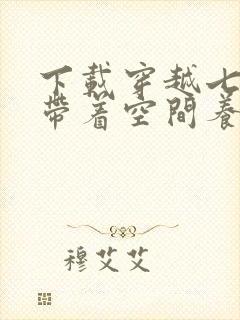 下載穿越七
帶着空間養
穆艾艾